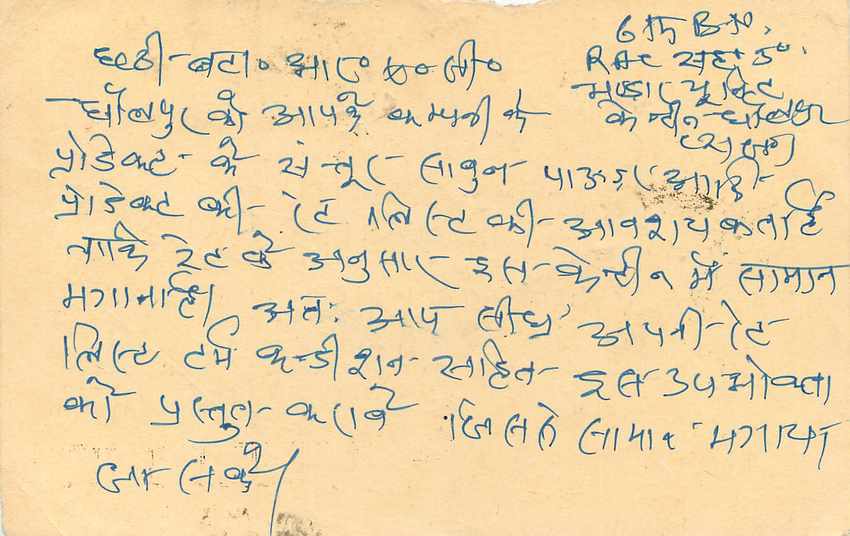 6th Bn.
RAC
छठी-बटा० आर० ए० सी०
धौलपुर को आपके कम्पनी के
केन्टीन-धौलपुर
(राज०)
प्रोडेक्ट- के संतूर- साबुन- पाऊडर आदि-
प्रोडेक्ट की- रेट लिस्ट की- आवश्यकता है
ताकि रेट के अनुसार इस- केन्टीन में सामान
मगाना है। अतः आप शीघ्र अपनी- रेट-
लिस्ट टर्म कन्डीशन- सहित- इस उपभोक्ता
को प्रस्तुत- करावे जिससे सामान- मगाया
जा सके